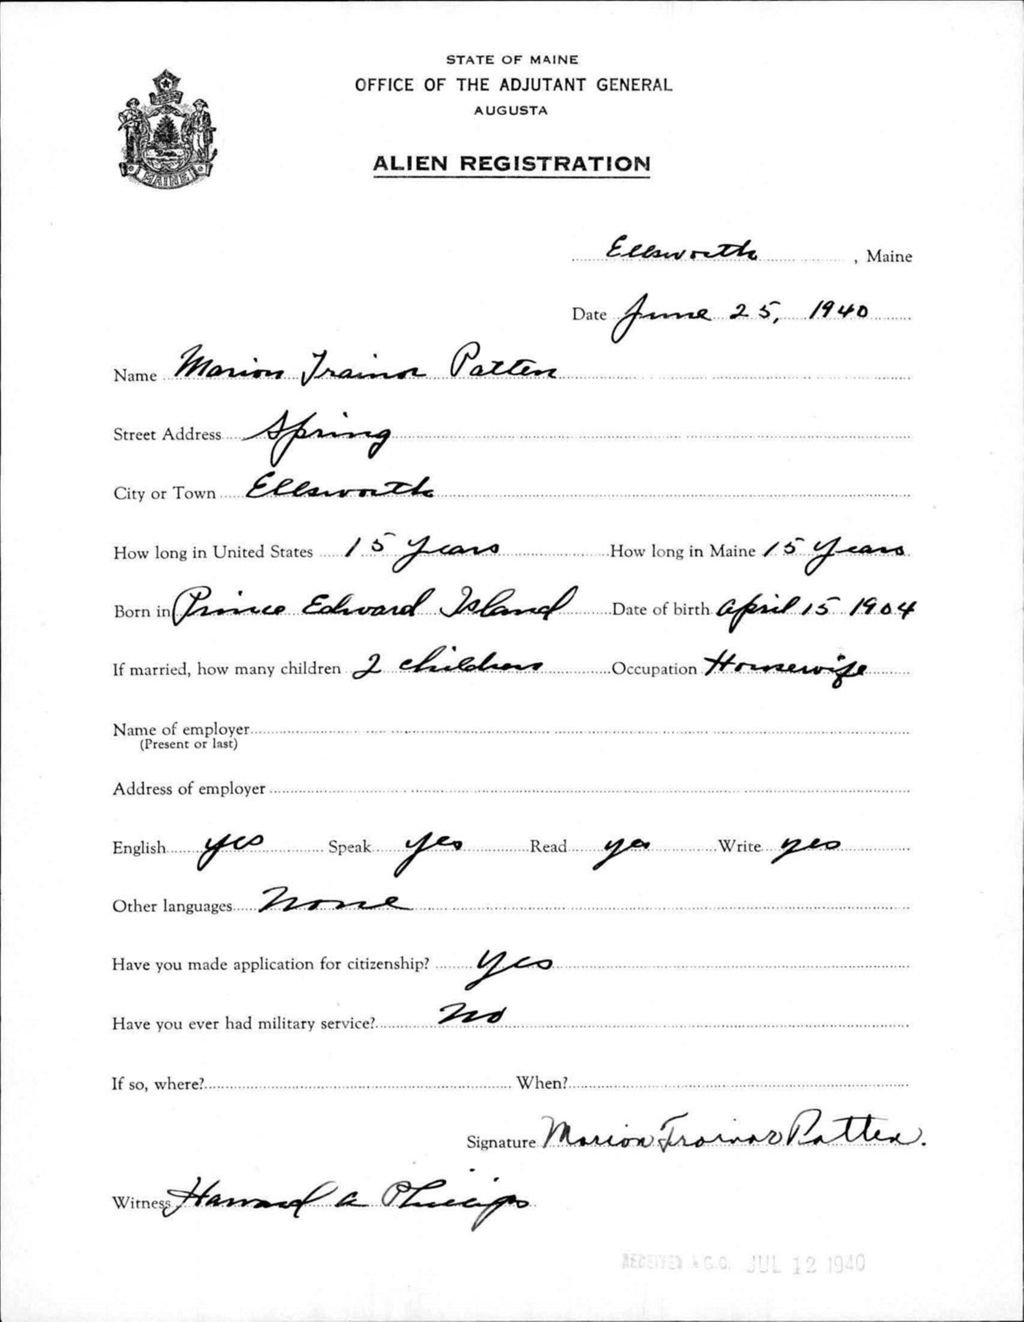 STATE OF MAINE
OFFICE OF THE ADJUTANT GENERAL
AUGUSTA
ALIEN REGISTRATION
MAINE
Ellsworth, Maine
Date June 25, 1940
Name Marion Trainor Patten
Street Address Spring
City or Town Ellsworth
How long in United States 15 years How long in Maine 15 years
Born in Prince Edward Island Date of birth April 15 1904
If married, how many children 2 children Occupation Housewife
Name of employer
(Present or last)
Address of employer
English yes Speak yes Read yes Write yes
Other languages None
Have you made application for citizenship? Yes
Have you ever had military service? No
If so, where? When?
Signature Marion Trainor Patten.
Witness Howard A Phillips
RECEIVED A.G.O. JUL 12 1940